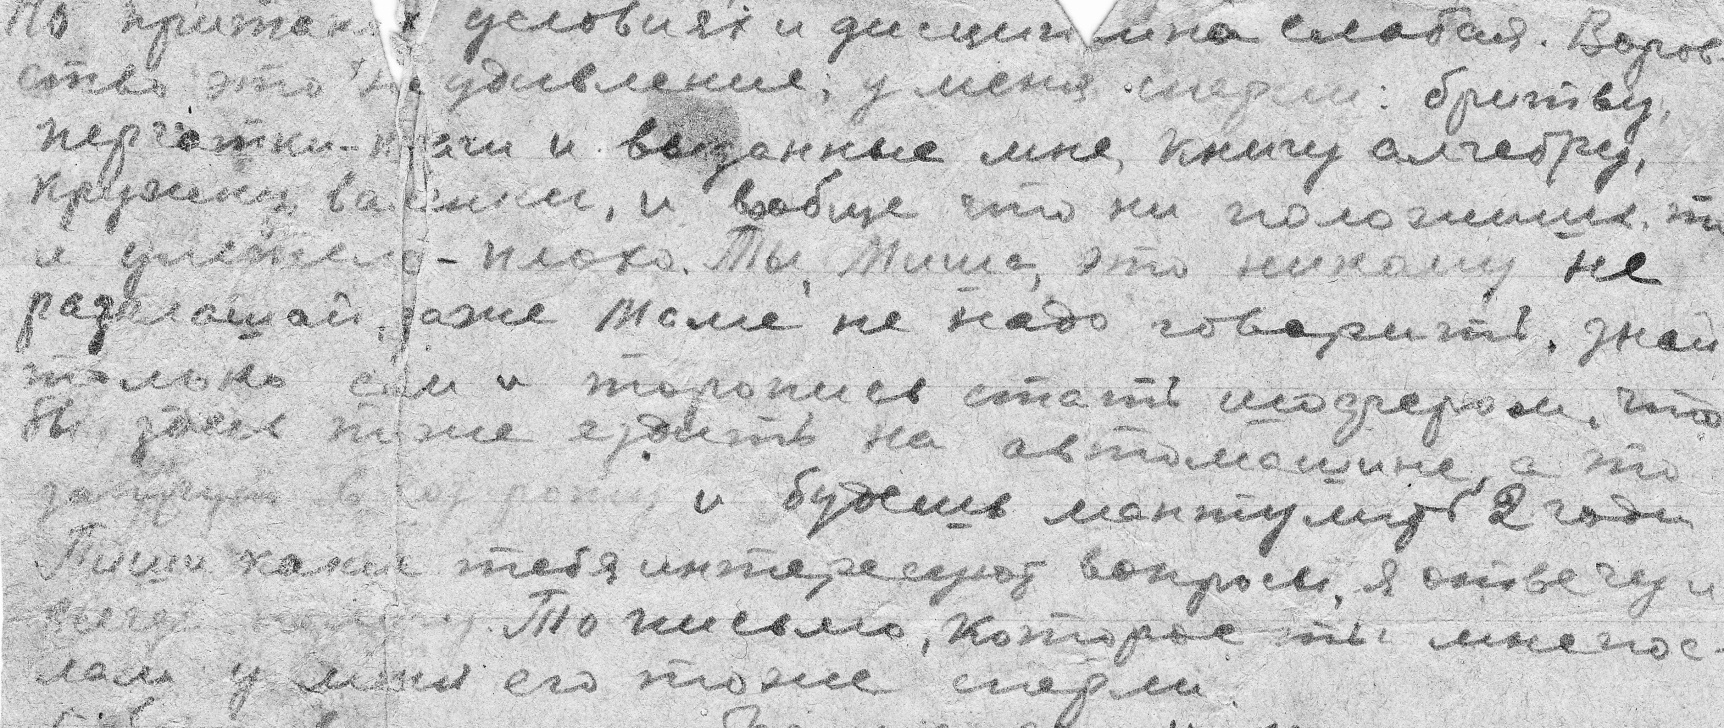 По при таких условиях и дисциплина слабая. Воров-
ство это не удивление, у меня сперли: бритву,
перчатки-краги и вязанные мне, книгу алгебру,
кружку, валенки, и вобще что ни положишь, то
и улетело - плохо. Ты, Миша, это никому не
разглашай, даже маме не надо говорить, знай
только сам и торопись стать шофером, что
бы здесь тоже ездить на автомашине, а то
в и будешь мантулить 2 года
Пиши какие тебя интересуют вопросы, я отвечу и
всегда То письмо, которое ты мне пос-
лал у меня его тоже сперли